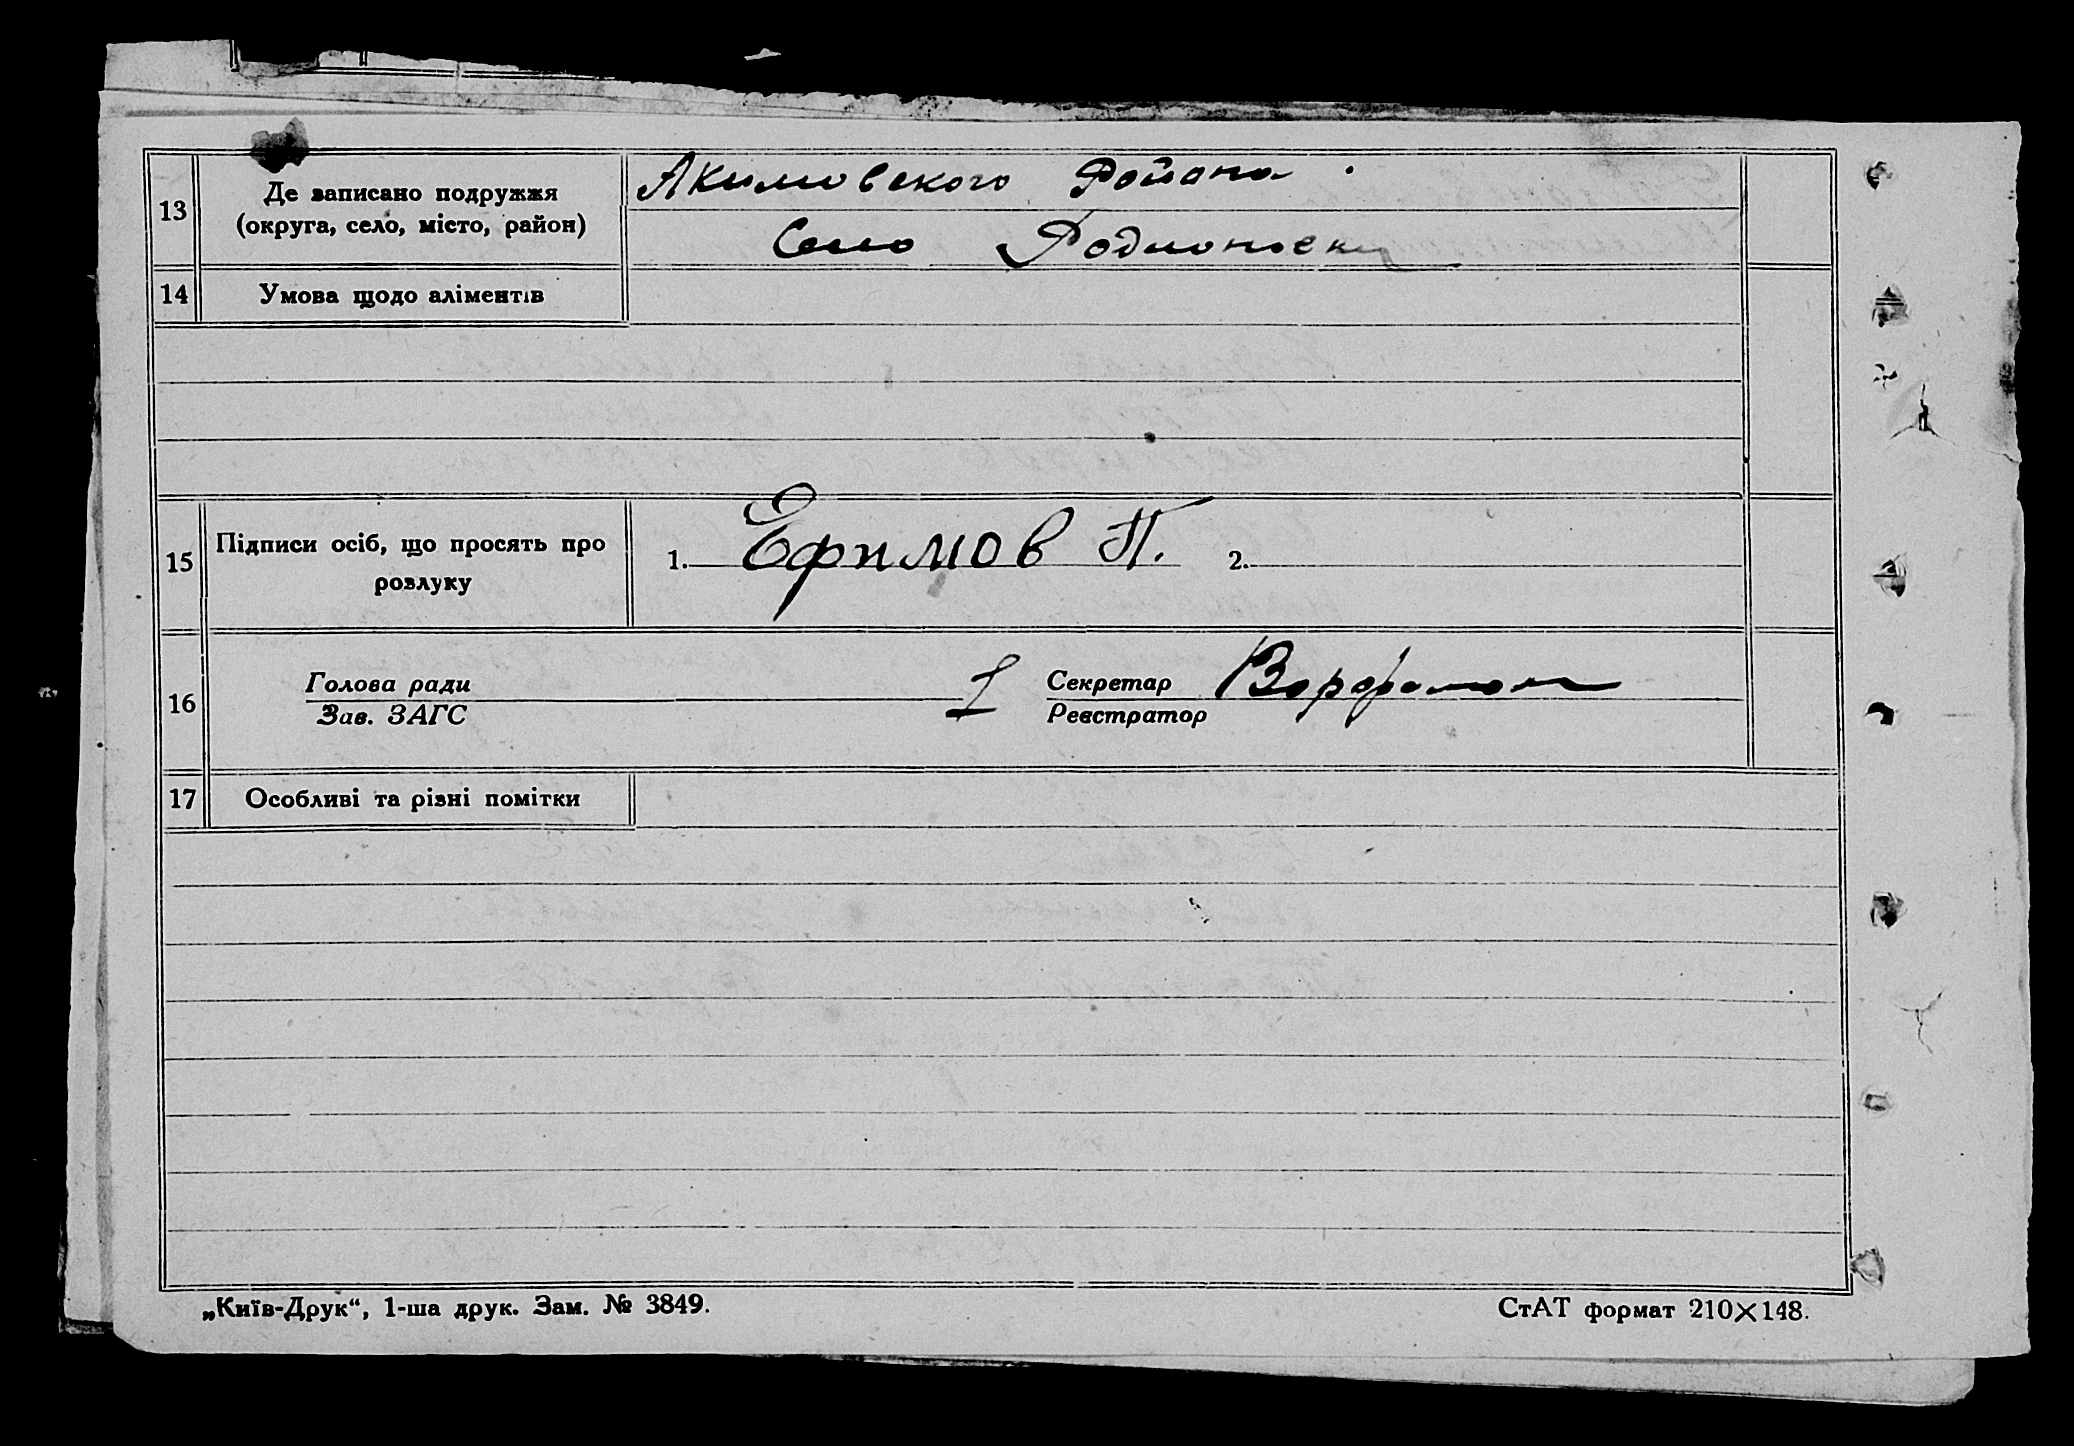 13
Де записано подружжя
(округа, село, місто, район)
Акимовского Района.
Село Родионовку
14
Умова щодо аліментів
15
Підписи осіб, що просять про
розлуку
1. Ефимов П. 2.
16
Голова ради
Зав. ЗАГС
Секретар
Реєстратор
17
Особливі та різні помітки
„Київ-Друк“, 1-ша друк. Зам. № 3849.
СтАТ формат 210×148.